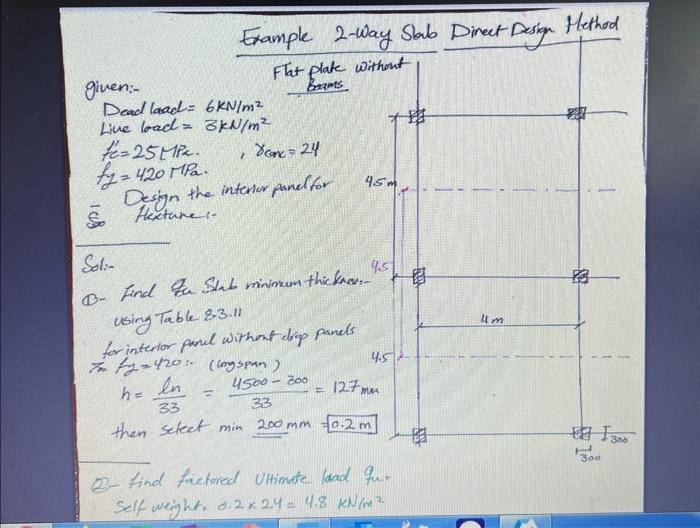 Example 2-Way Slab Direct Design Method
Flat plate Without
Beams
given:-
Dead load = 6KN/m²
Live load = 3KN/m²
f'c=25MPa. , γconc = 24
fy = 420 MPa.
Design the interior panel for
flexture:-
4.5m
Sol:-
4.5
①- Find Slab minimum thickness:-
using Table 8.3.11
for interior panel without drop panels
fy=420:- (long span)
4m
4.5
h = ln/33 = 4500 - 300/33 = 127mm
then select min 200mm = 0.2m
300
300
②- find factored Ultimate load qu.
Self weight. 0.2 x 24 = 4.8 KN/m²